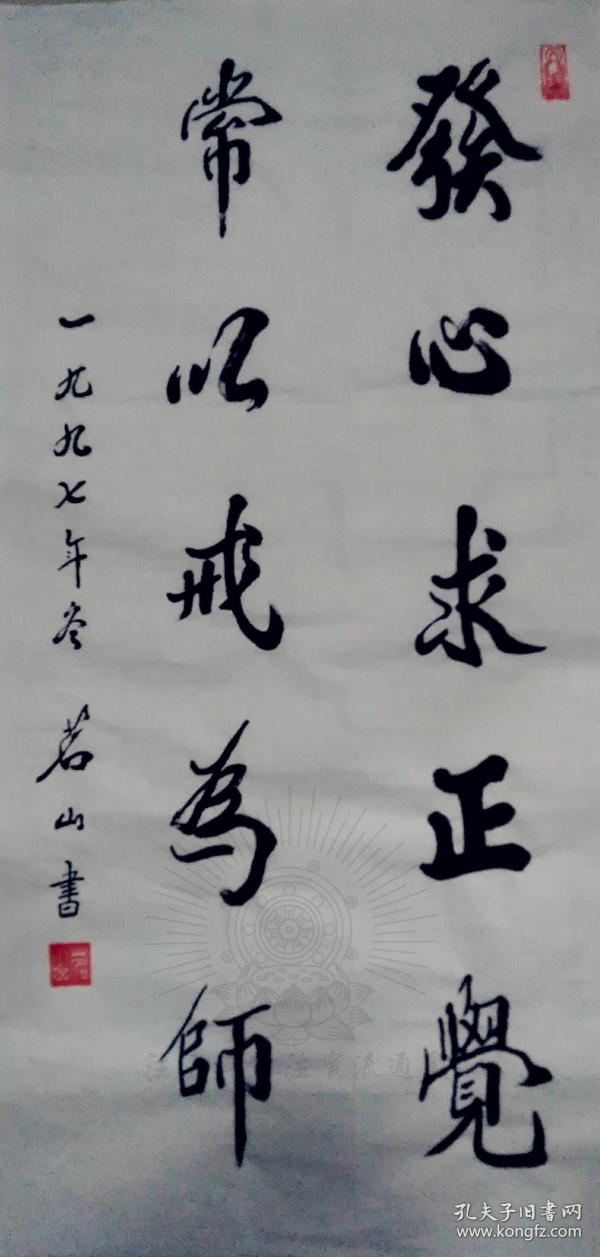 發心求正覺
常以戒為師
一九九七年冬 茗山書
法寶流通
孔夫子旧書网
www.kongfz.com